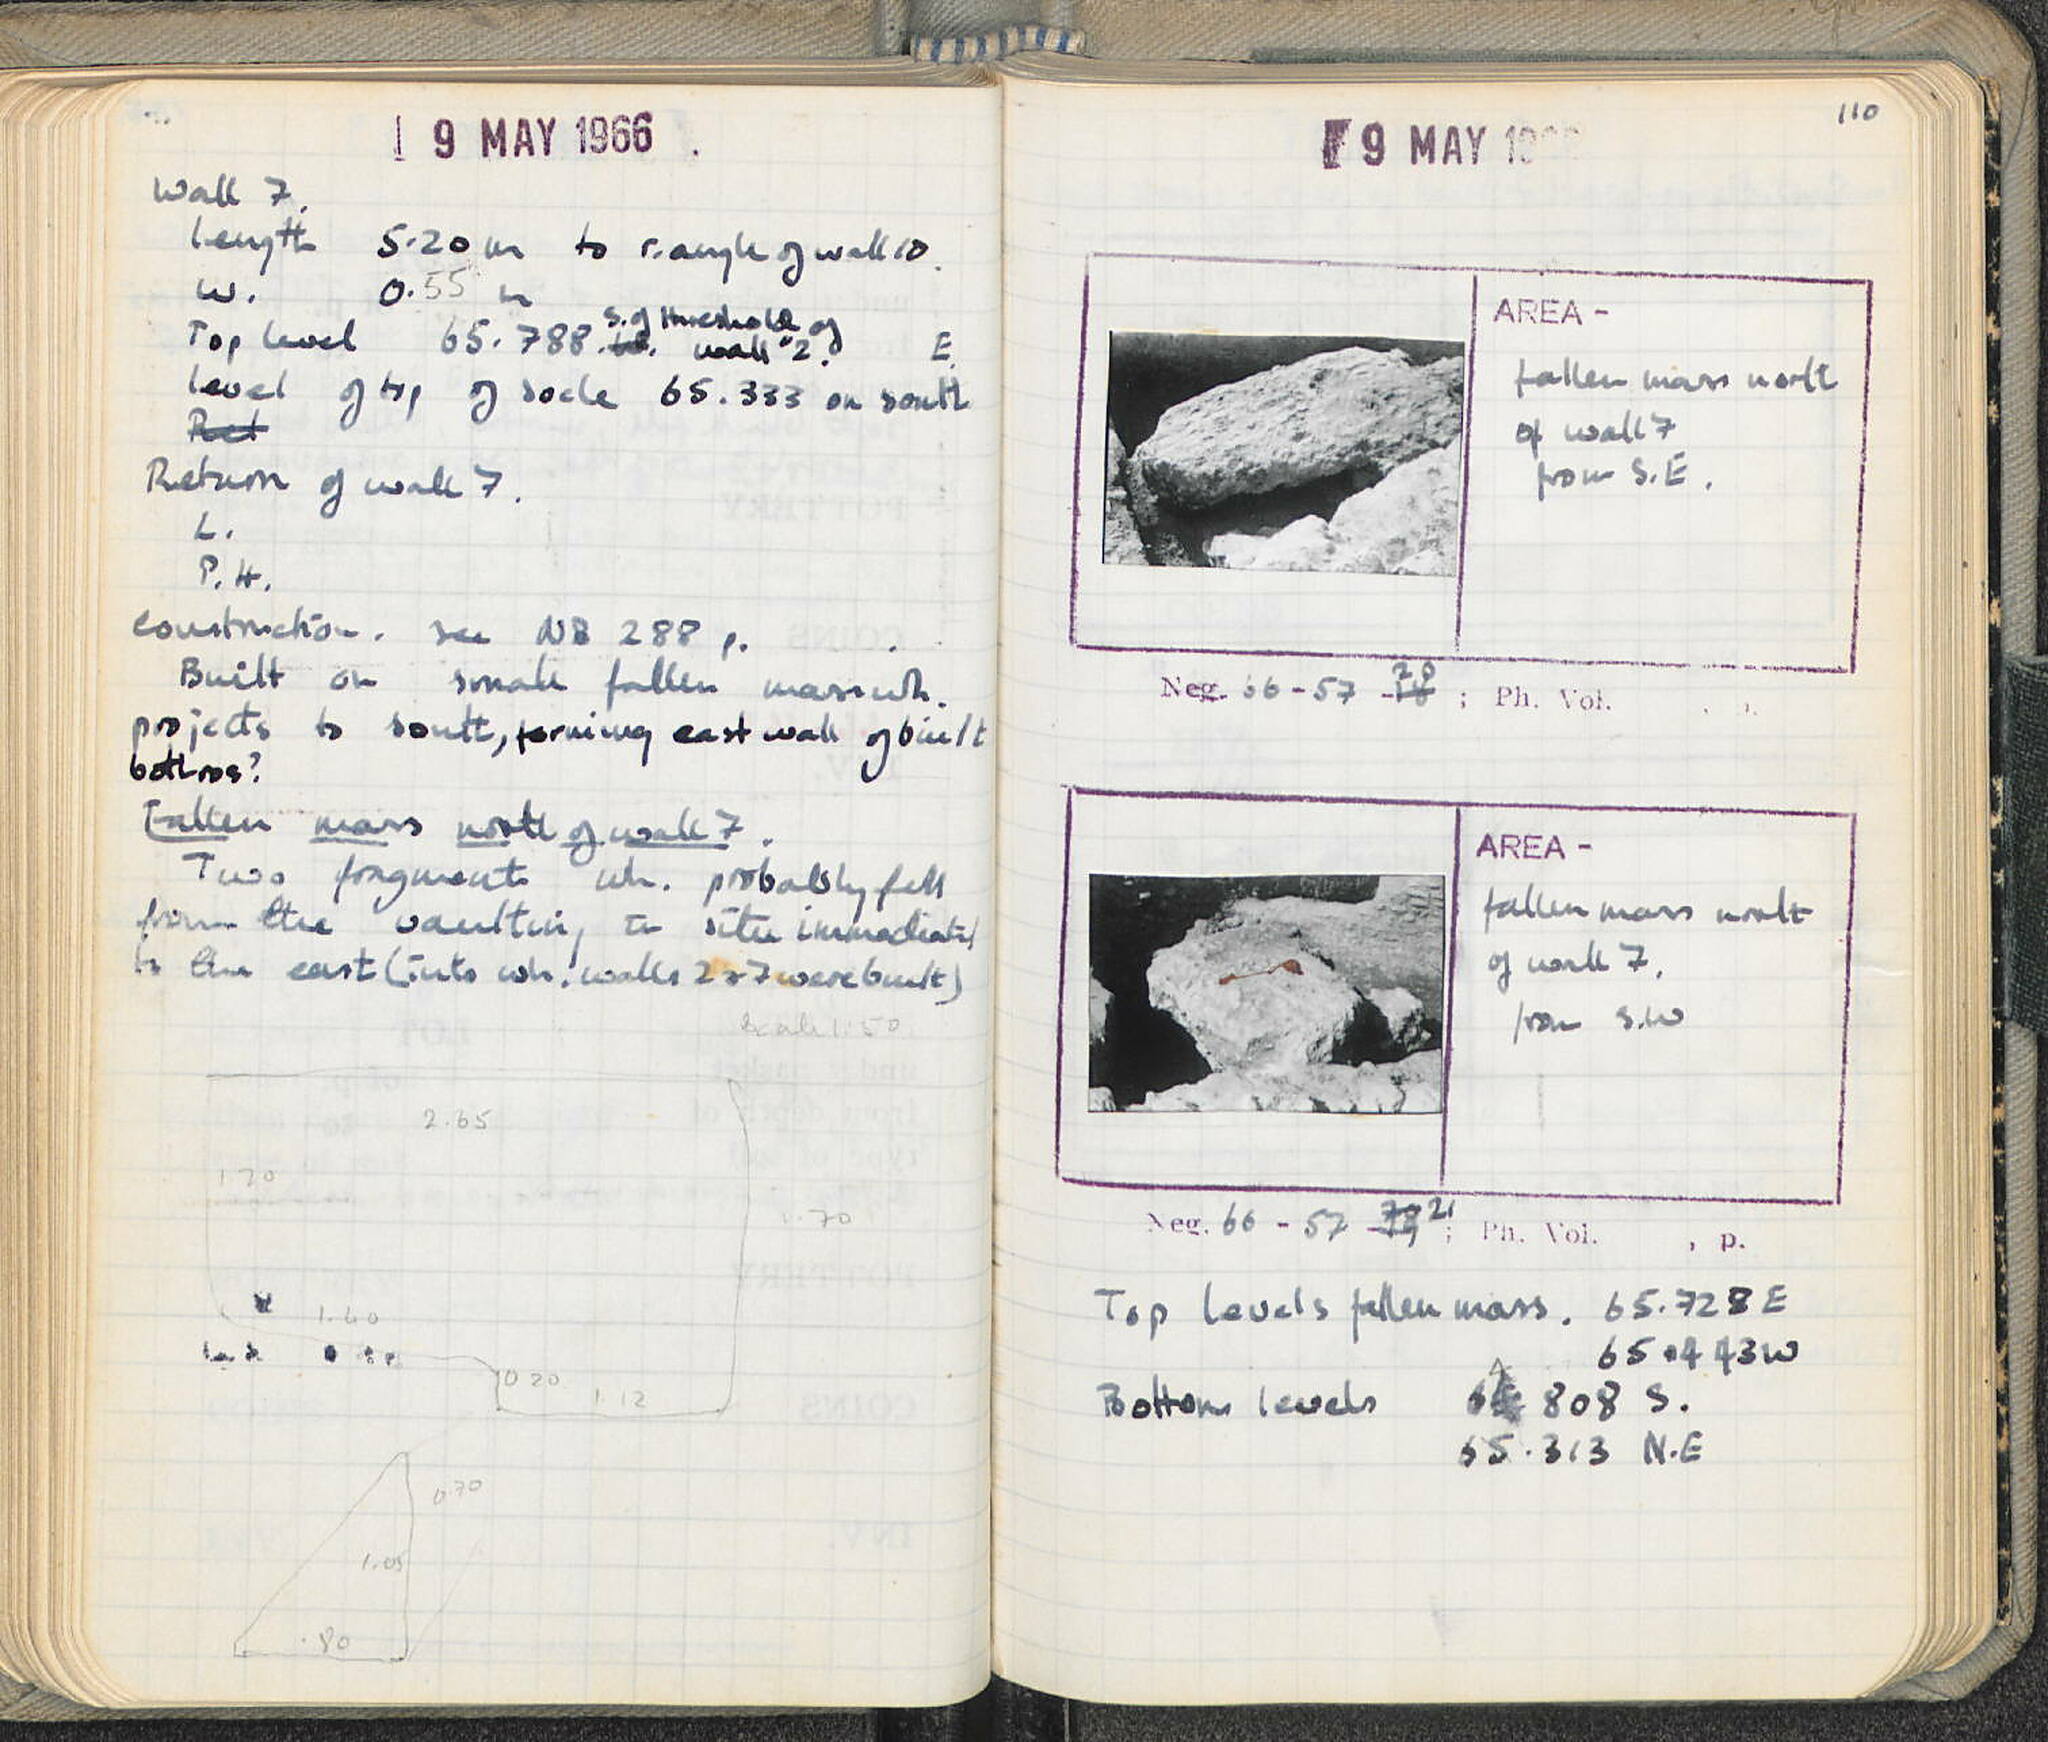 19 MAY 1966
Wall 7.
Length 5.20 m to r. angle of wall 10.
W. 0.55 m
S. of threshold of
Top level 65.788. wall 2. E.
level of top of socle 65.333 on south
Ret
Return of wall 7.
L.
P.H.
Construction. see NB 288 p. .
Built on small fallen mass wh.
projects to south, forming east wall of built
bothros?
Fallen mass north of wall 7.
Two fragments wh. probably fell
from the vaulting in situ immediately
to the east (into wh. walls 2 & 7 were built)
Scale 1:50
2.65
1.20
1.70
1.60
0 20
1.12
0.70
1.05
.80
110
19 MAY 19
AREA -
fallen mass north
of wall 7
from S.E.
Neg. 66 - 57 - ; Ph. Vol. , p.
AREA -
fallen mass north
of wall 7.
from S.W
Neg. 66 - 57 - 21 ; Ph. Vol. , p.
Top levels fallen mass. 65.728 E
65.443 W
Bottom levels 808 S.
65.313 N.E